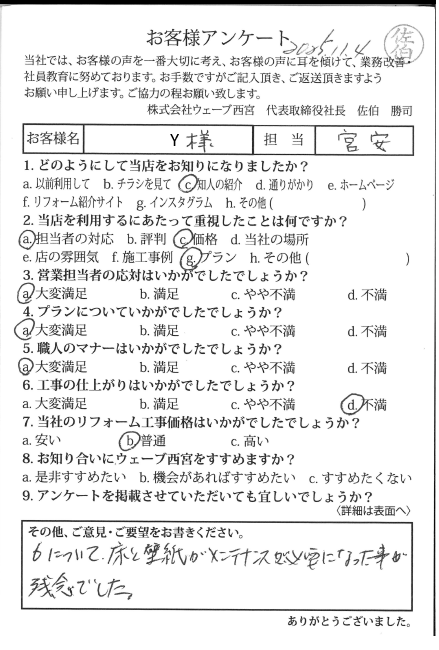 お客様アンケート 2025.11.4 佐伯
当社では、お客様の声を一番大切に考え、お客様の声に耳を傾けて、業務改善・
社員教育に努めております。お手数ですがご記入頂き、ご返送頂きますよう
お願い申し上げます。ご協力の程お願い致します。
株式会社ウェーブ西宮 代表取締役社長 佐伯 勝司
お客様名 Y 様 担当 宮安
1. どのようにして当店をお知りになりましたか？
a. 以前利用して b. チラシを見て c. 知人の紹介 d. 通りがかり e. ホームページ
f. リフォーム紹介サイト g. インスタグラム h. その他 ( )
2. 当店を利用するにあたって重視したことは何ですか？
a. 担当者の対応 b. 評判 c. 価格 d. 当社の場所
e. 店の雰囲気 f. 施工事例 g. プラン h. その他 ( )
3. 営業担当者の応対はいかがでしたでしょうか？
a. 大変満足 b. 満足 c. やや不満 d. 不満
4. プランについていかがでしたでしょうか？
a. 大変満足 b. 満足 c. やや不満 d. 不満
5. 職人のマナーはいかがでしたでしょうか？
a. 大変満足 b. 満足 c. やや不満 d. 不満
6. 工事の仕上がりはいかがでしたでしょうか？
a. 大変満足 b. 満足 c. やや不満 d. 不満
7. 当社のリフォーム工事価格はいかがでしたでしょうか？
a. 安い b. 普通 c. 高い
8. お知り合いにウェーブ西宮をすすめますか？
a. 是非すすめたい b. 機会があればすすめたい c. すすめたくない
9. アンケートを掲載させていただいても宜しいでしょうか？
〈詳細は表面へ〉
その他、ご意見・ご要望をお書きください。
6について、床と壁紙がメンテナンス必要になった事が
残念でした。
ありがとうございました。